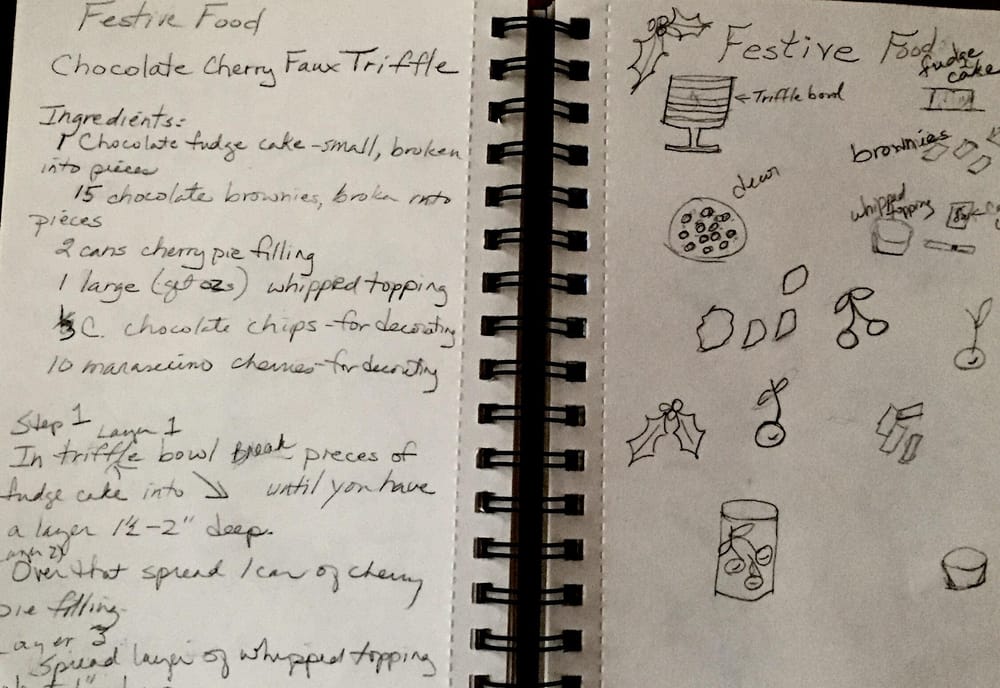 Festive Food
Chocolate Cherry Faux Triffle
Ingredients:
1 Chocolate fudge cake-small, broken
into pieces
15 chocolate brownies, broken into
pieces
2 cans cherry pie filling
1 large (get ozs) whipped topping
1/3 C. chocolate chips-for decorating
10 marascino cherries-for decorating
Step 1 Layer 1
In triffle bowl Break pieces of
fudge cake into until you have
a layer 1½-2" deep.
Layer 2)
Over that spread 1 can of cherry
pie filling.
Layer 3
Spread layer of whipped topping
Festive Food
fudge
cake
←Triffle bowl
brownies
decor
whipped
topping